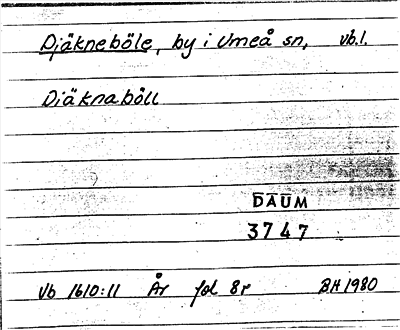 Djäkneböle, by i Umeå sn, vb.l.
Diäknaböll
DAUM
3747
Vb 1610:11 År fol 8r BH 1980